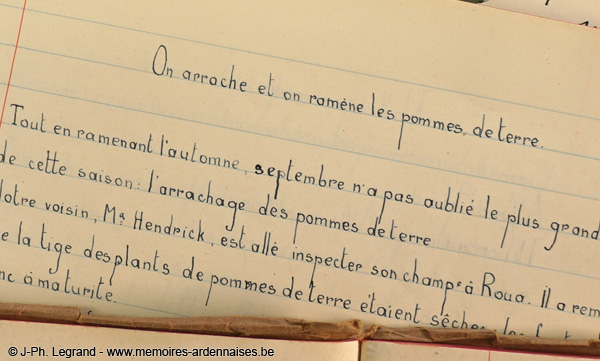 On arrache et on ramène les pommes de terre.
Tout en ramenant l'automne, septembre n'a pas oublié le plus grand
de cette saison: l'arrachage des pommes de terre
Notre voisin, Mr Hendrick, est allé inspecter son champ à Roua. Il a rem
e la tige des plants de pommes de terre étaient
nc à maturité.
© J-Ph. Legrand - www.memoires-ardennaises.be